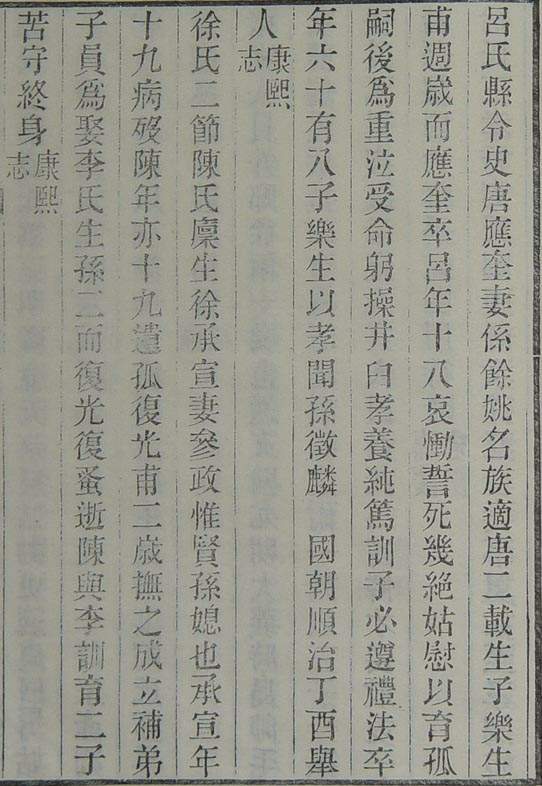 呂氏縣令史唐應奎妻係餘姚名族適唐二載生子樂生
甫週歲而應奎卒呂年十八哀慟誓死幾絕姑慰以育孤
嗣後爲重泣受命躬操井臼孝養純篤訓子必遵禮法卒
年六十有八子樂生以孝聞孫徵麟　國朝順治丁酉舉
人康熙志
徐氏二節陳氏廩生徐承宣妻參政惟賢孫媳也承宣年
十九病歿陳年亦十九遺孤復光甫二歲撫之成立補弟
子員爲娶李氏生孫二而復光復蚤逝陳與李訓育二子
苦守終身康熙志